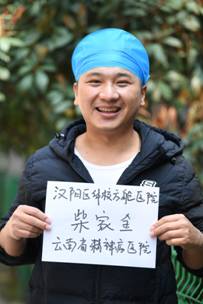 汉阳区体校方舱医院
柴家全
云南省精神病医院